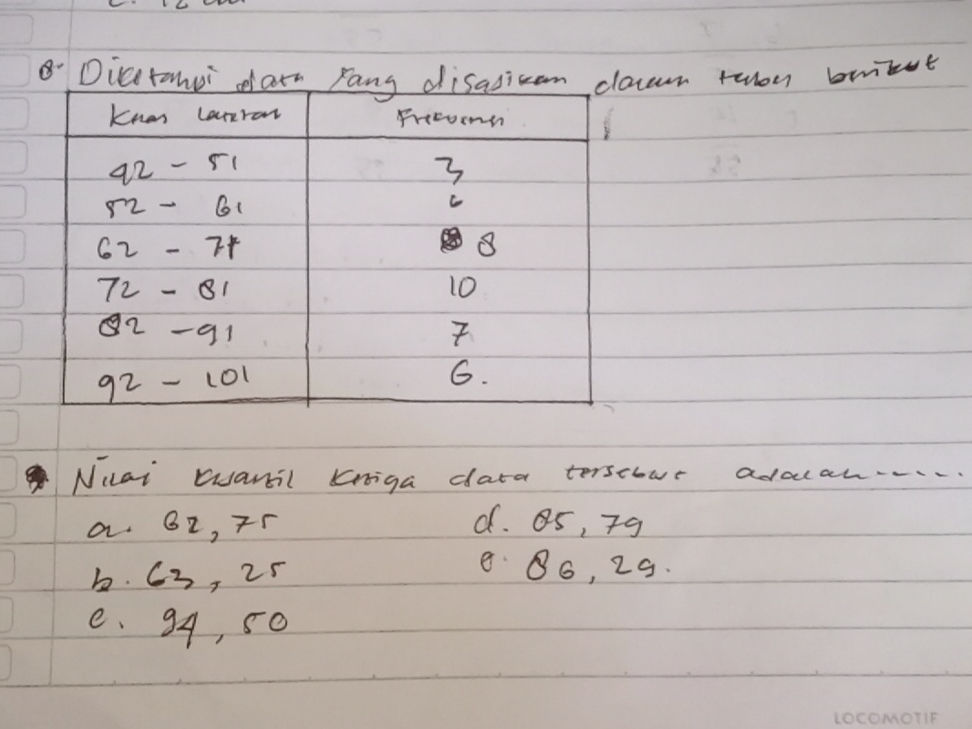 8. Diketahui data yang disajikan dalam tabel berikut
Kelas Interval Frekuensi
42 - 51 3
52 - 61 6
62 - 71 8
72 - 81 10
82 - 91 7
92 - 101 6.
Nilai kuartil ketiga data tersebut adalah.....
a. 62,75 d. 85,79
b. 63,25 e. 86,29.
c. 94,50
LOCOMOTIF